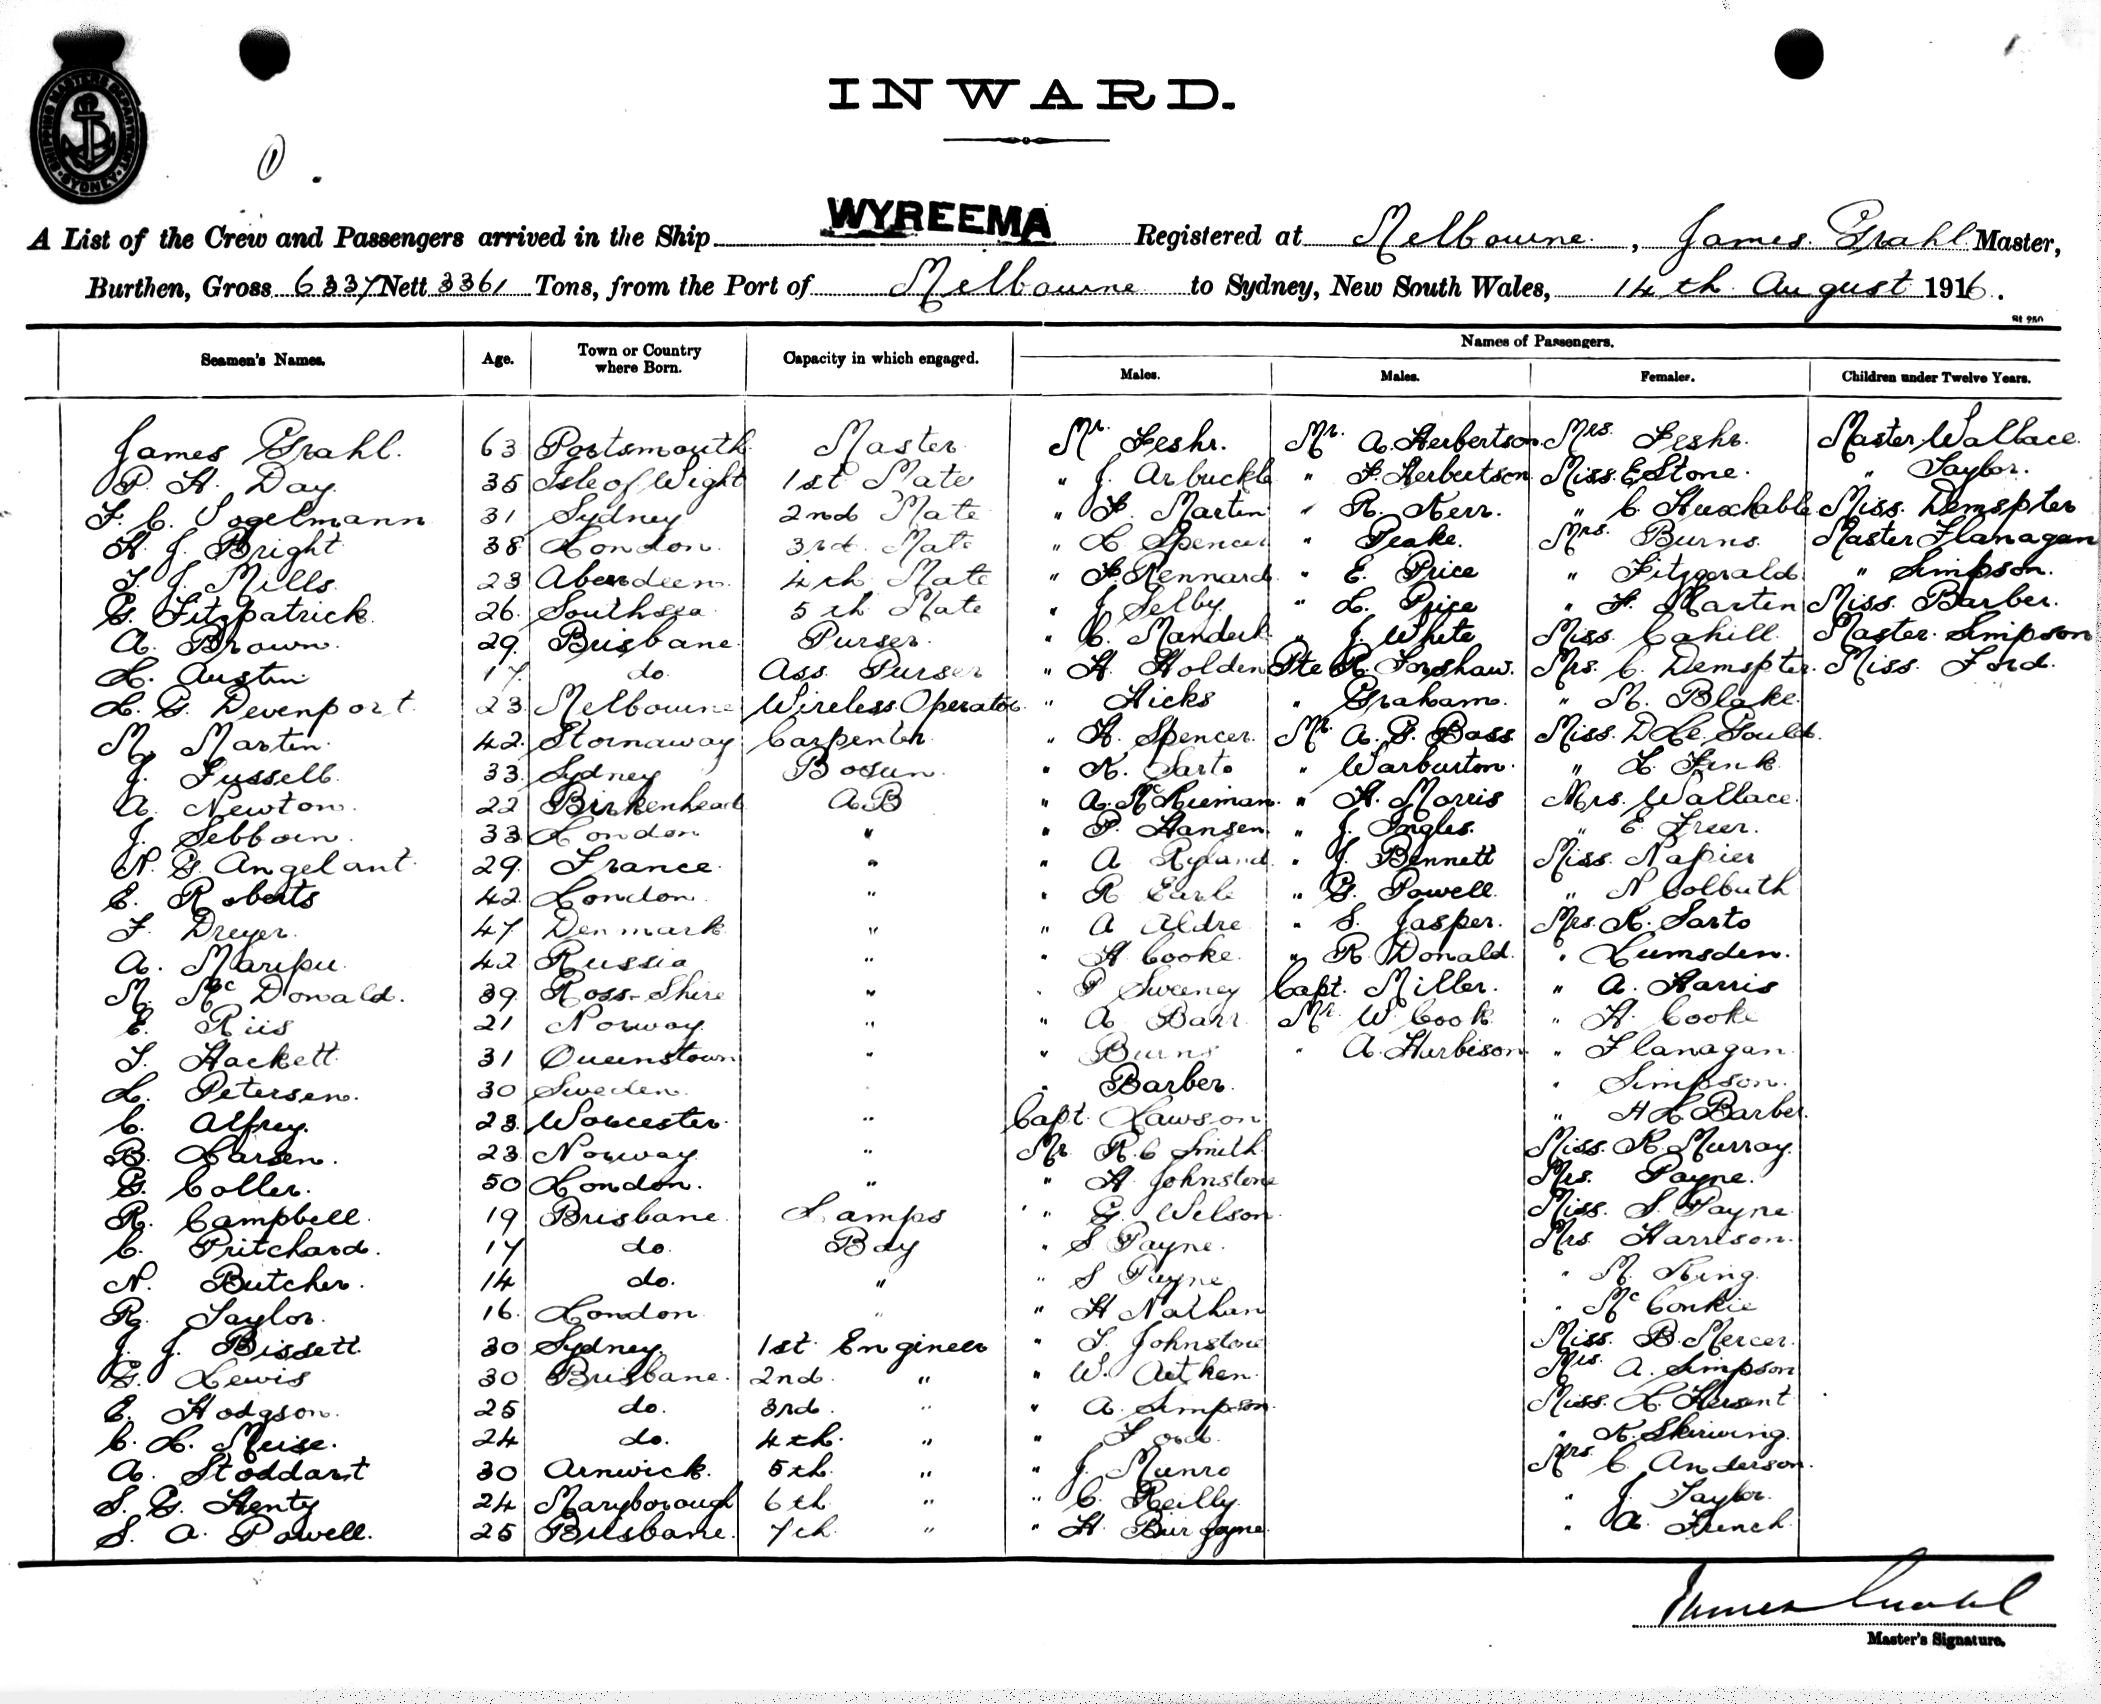 SHIPPING MASTERS DEPARTMENT SYDNEY
INWARD.
1
A List of the Crew and Passengers arrived in the Ship WYREEMA Registered at Melbourne, James Grahl Master,
Burthen, Gross 6337 Nett 3361 Tons, from the Port of Melbourne to Sydney, New South Wales, 14th August 1916.
Seamen's Names. Age. Town or Country where Born. Capacity in which engaged. Names of Passengers.
Males. Males. Females. Children under Twelve Years.
James Grahl. 63 Portsmouth Master Mr. Feshr. Mr. A. Herbertson Mrs. Feshr. Master Wallace.
P. H. Day 35 Isle of Wight 1st Mate " J. Arbuckle " F. Herbertson Miss. E Stone. " Taylor.
F. C. Vogelmann 31 Sydney 2nd Mate " F. Martin " R. Kerr. " C. Huxhable Miss. Demspter
H. J. Bright 38 London. 3rd. Mate " L Spencer " Peake. Mrs. Burns Master Flanagan
T. J. Mills. 23 Aberdeen. 4th Mate " F. Kennard " E. Price " Fitzgerald " Simpson.
G. Fitzpatrick 26. Southsea. 5th Mate " J Selby " L. Price " F. Martin Miss. Barber.
A. Brown. 29. Brisbane Purser. " C. " J. White Miss. Cahill Master. Simpson
L. Austin 17. do. Ass. Purser " H. Holden Pte R. Forshaw. Mrs. C. Demspter. Miss. Ford.
L. G. Devenport. 23 Melbourne Wireless Operator " Hicks " Graham. " M. Blake.
M. Martin. 42. Stornaway Carpenter " H. Spencer. Mr. A. G. Bass Miss. D Le Gould.
J. Fussell. 33. Sydney Bosun. " K. Sarto " Warburton. " L. Fink
A. Newton. 22 Birkenhead A.B " A. " H. Morris Mrs. Wallace.
J. Sebborn. 33 London " " P. Hansen. " J. Ingles. " E. Freer.
N. G. Angelant. 29. France. " " A Ryland. " J. Bennett Miss. Napier
E. Roberts 42. London. " " R Earle " G. Powell. " N Colbuth
F. Dreyer. 47 Denmark " " A Aldre " S. Jasper. Mrs. K. Sarto
A. Maripu. 42 Russia " " H Cooke. " R. Donald. " Lumsden.
M. McDonald. 39. Ross-Shire " " P Sweeney Capt. Miller. " A. Harris
E. Riis 21 Norway. " " A Barr. Mr. W. Cook " H. Cooke
T. Hackett 31 Queenstown " " Burns " A. Harbison " Flanagan.
L. Petersen. 30 Sweden. " " Barber. " Simpson.
C. Alfrey. 23. Worcester. " Capt. Lawson " H L Barber.
B. Larsen. 23 Norway " Mr R. C Smith. Miss. K. Murray.
G. Coller. 50 London. " " H Johnstone Mrs. Payne.
R. Campbell. 19 Brisbane. Lamps " G. Wilson. Miss. S. Payne.
C. Pritchard. 17 do. Boy " S Payne. Mrs. Harrison.
N. Butcher. 14 do. " " S Payne " M. King.
R. Taylor. 16. London " " H Nathan " McConkie
J. J. Bissett 30 Sydney. 1st Engineer " T. Johnstone Miss. B. Mercer.
G. Lewis 30 Brisbane. 2nd. " " W. Aitken. Mrs. A. Simpson
E. Hodgson. 25 do. 3rd. " " A. Simpson. Miss. L. Hersent
C. L. Meise. 24 do. 4th. " " Ford. " K. Skirving.
A. Stoddart 30 Arnwick. 5th. " " J. Munro Mrs. C Anderson.
S. G. Henty 24 Maryborough 6th " " C. Reilly. " J. Taylor.
S. A. Powell. 25 Brisbane. 7th " " H. Burgoyne " A. French
James Grahl
Master's Signature.